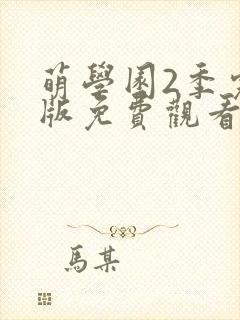 萌學園2季
版免費觀看
馬某